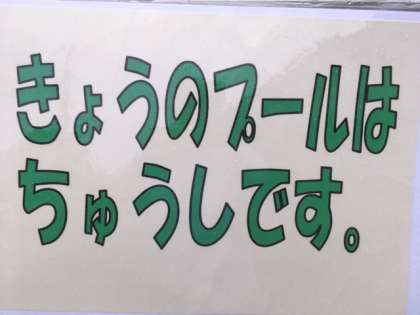 きょうのプールは
ちゅうしです。